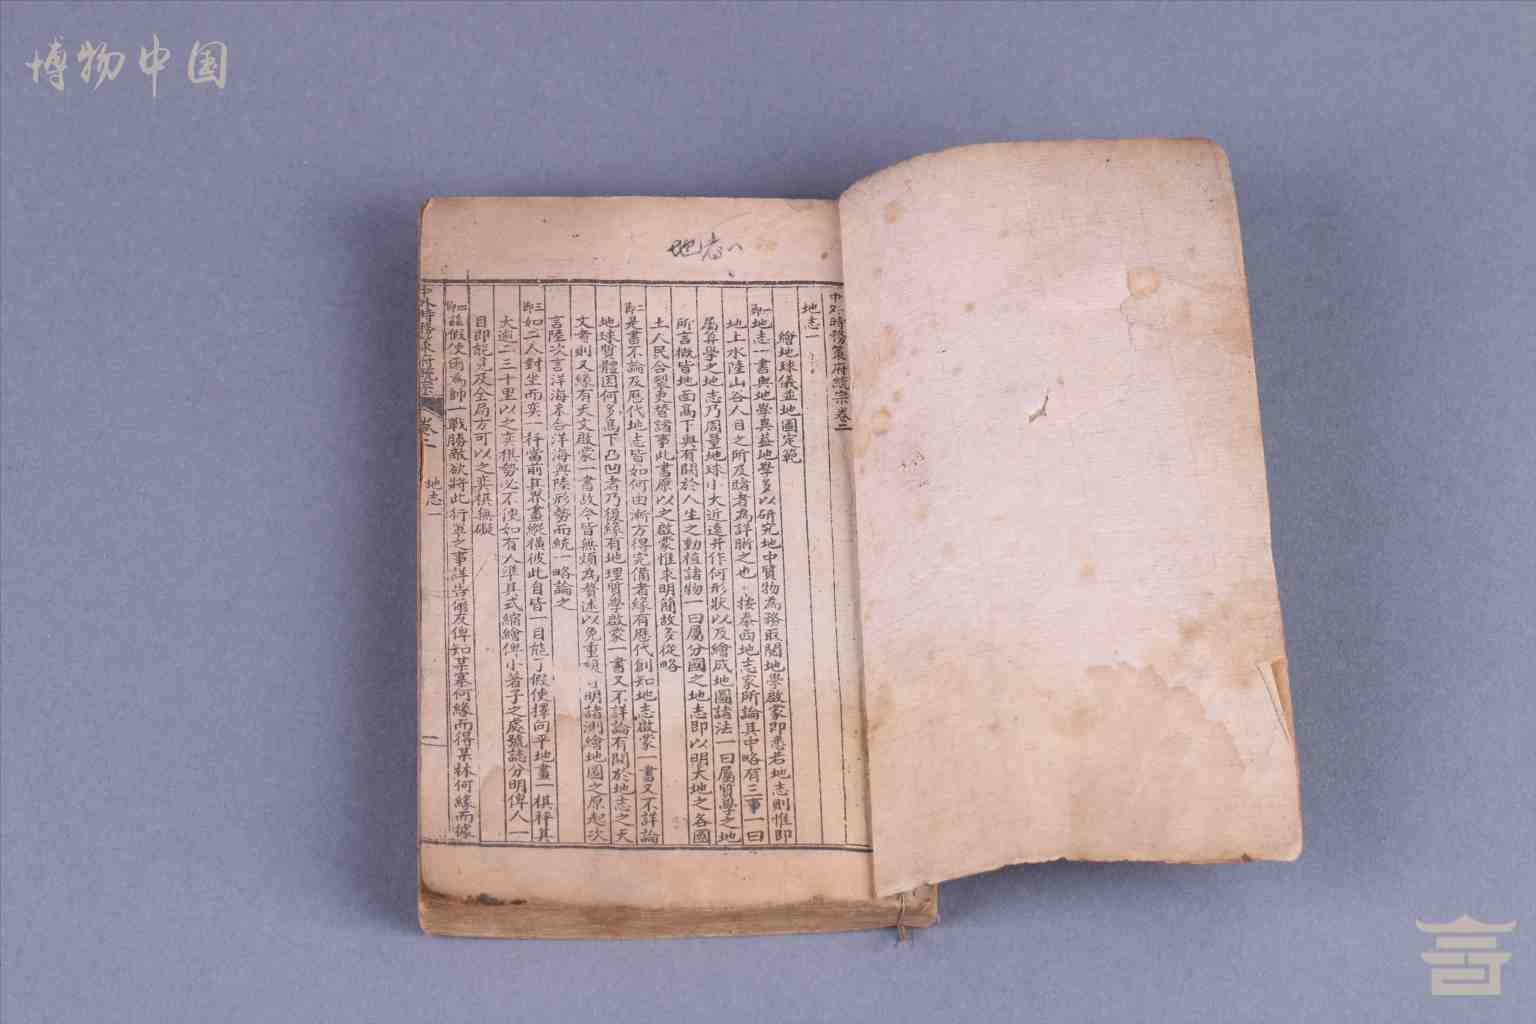 博物中国
地志
中外時務策府統宗卷二
地志一
繪地球儀並地圖定範
第一節地志一書與地學異蓋地學多以研究地中質物為務取閱地學啟蒙即悉若地志則惟即
地上水陸山谷人目之所及睹者為詳晰之也 按泰西地志家所論其中略有三事一曰
屬算學之地志乃周量地球小大近遠并作何形狀以及繪成地圖諸法一曰屬質學之地
所言概皆地面高下與有關於人生之動植諸物一曰屬分國之地志即以明大地之各國
土人民合製更替諸事此書原以之啟蒙惟求明簡故多從略
第二節是書不論及歷代地志皆如何由漸方得完備者緣有歷代創知地志啟蒙一書又不詳論
地球質體因何多高下凸凹者乃復緣有地理質學啟蒙一書又不詳論有關於地志之天
文者則又緣有天文啟蒙一書故今皆無煩為贅述以免重複 明諸測繪地圖之原起次
言陸次言洋海末合洋海與陸形勢而統一略論之
第三節如二人對坐而奕一秤當前其界畫縱橫彼此自皆一目能了假使擇向平地畫一棋秤其
大逾二三十里以之奕棋勢必不便如有人準其式縮繪俾小著子之處號誌分明俾人一
目即能見及全局方可以之奕棋無礙
第四節茲假使爾為帥一戰勝敵欲將此行軍之事詳告朋友俾知某寨何緣而得某林何緣而據
中外時務策府統宗 卷二 地志一 一